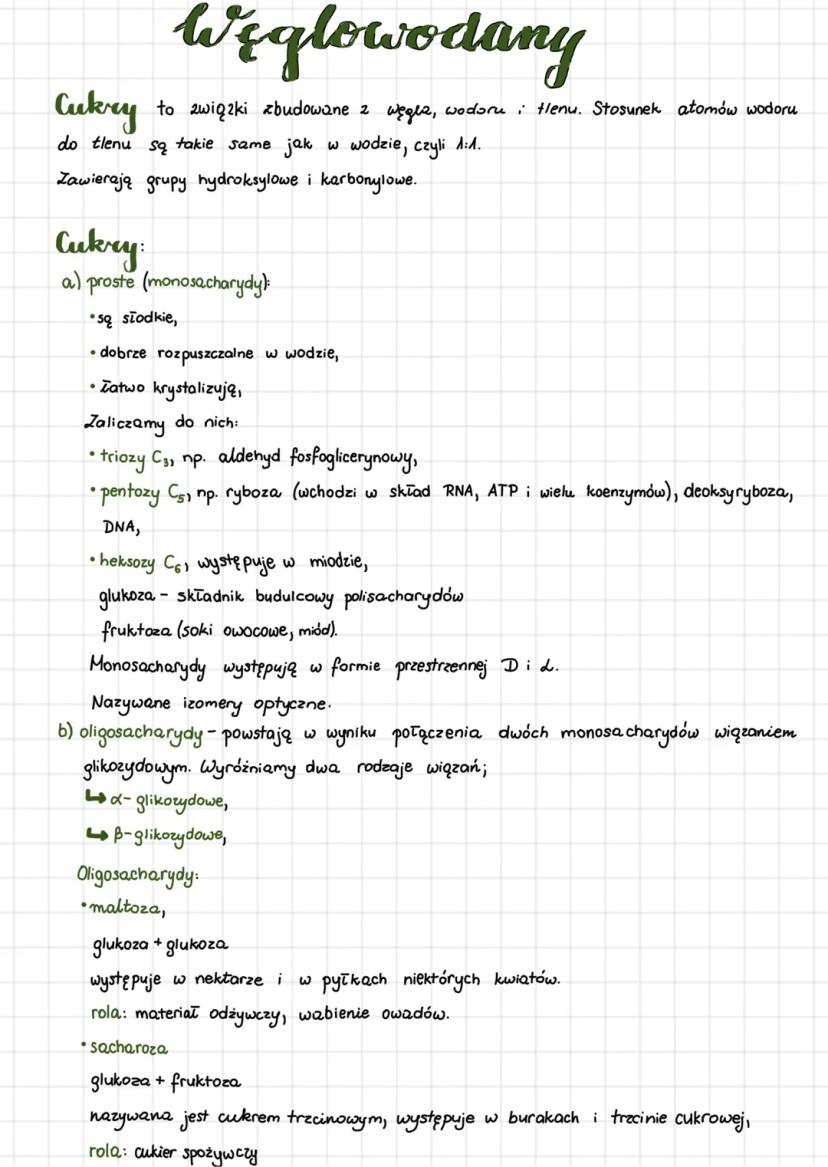 Węglowodany
Cukry to związki zbudowane z węgla, wodoru i tlenu. Stosunek atomów wodoru
do tlenu są takie same jak w wodzie, czyli 1:1.
Zawierają grupy hydroksylowe i karbonylowe.
Cukry:
a) proste (monosacharydy):
•są słodkie,
• dobrze rozpuszczalne w wodzie,
• łatwo krystalizują,
Zaliczamy do nich:
• triozy C₃, np. aldehyd fosfoglicerynowy,
• pentozy C₅, np. ryboza (wchodzi w skład RNA, ATP i wielu koenzymów), deoksyryboza,
DNA,
• heksozy C₆, występuje w miodzie,
glukoza - składnik budulcowy polisacharydów
fruktoza (soki owocowe, miód).
Monosacharydy występują w formie przestrzennej D i L.
Nazywane izomery optyczne.
b) oligosacharydy - powstają w wyniku połączenia dwóch monosacharydów wiązaniem
glikozydowym. Wyróżniamy dwa rodzaje wiązań;
↳ α- glikozydowe,
↳ β-glikozydowe,
Oligosacharydy:
• maltoza,
glukoza + glukoza
występuje w nektarze i w pyłkach niektórych kwiatów.
rola: materiał odżywczy, wabienie owadów.
• sacharoza
glukoza + fruktoza
nazywana jest cukrem trzcinowym, występuje w burakach i trzcinie cukrowej,
rola: cukier spożywczy